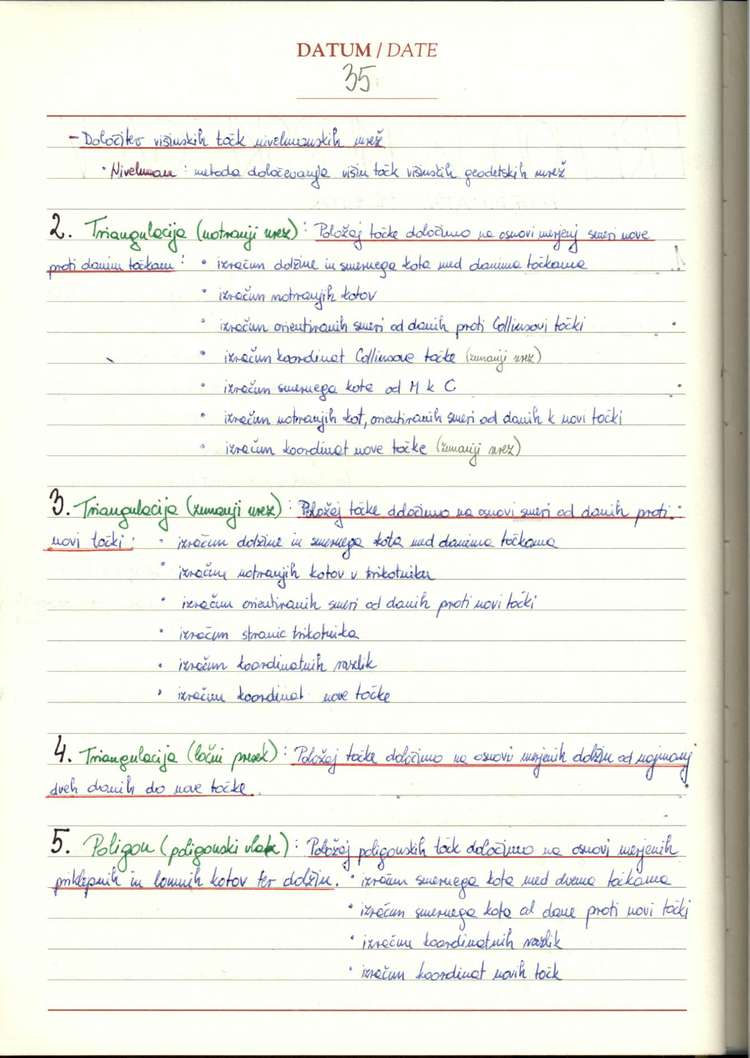 DATUM / DATE
35
- Določitev višinskih točk nivelmanskih mrež
• Nivelman : metoda določevanja višin točk višinskih geodetskih mrež
2. Triangulacija (notranji urez) : Položaj točke določimo na osnovi merjenj smeri nove
proti danim točkam : • izračun dolžine in smernega kota med danima točkama
• izračun notranjih kotov
• izračun orientiranih smeri od danih proti Collinsovi točki
• izračun koordinat Collinsove točke (zunanji urez)
• izračun smernega kota od M k C
• izračun notranjih kot, orientiranih smeri od danih k novi točki
• izračun koordinat nove točke (zunanji urez)
3. Triangulacija (zunanji urez) : Položaj točke določimo na osnovi smeri od danih proti
novi točki : • izračun dolžine in smernega kota med danima točkama
• izračun notranjih kotov v trikotniku
• izračun orientiranih smeri od danih proti novi točki
• izračun stranic trikotnika
• izračun koordinatnih razlik
• izračun koordinat nove točke
4. Triangulacija (ločni presek) : Položaj točke določimo na osnovi merjenih dolžin od najmanj
dveh danih do nove točke.
5. Poligon (poligonski vlak) : Položaj poligonskih točk določimo na osnovi merjenih
priklepnih in lomnih kotov ter dolžin. • izračun smernega kota med dvema točkama
• izračun smernega kota od dane proti novi točki
• izračun koordinatnih razlik
• izračun koordinat novih točk